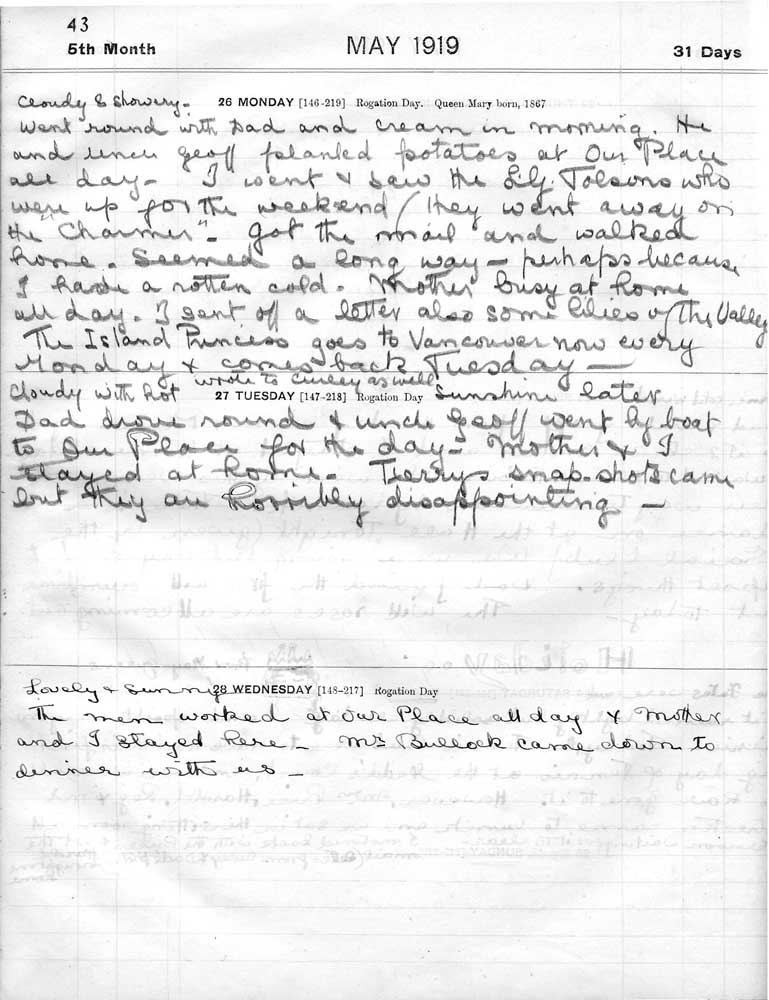 43
5th Month MAY 1919 31 Days
Cloudy & Showery. 26 MONDAY [146-219] Rogation Day. Queen Mary born, 1867
Went round with Dad and cream in morning. He
and Uncle Geoff planted potatoes at Our Place
all day - I went & saw the Tolsons who
were up for the weekend (they went away on
the "Charmer". Got the mail and walked
home. Seemed a long way - perhaps because
I have a rotten cold. Mother busy at home
all day. I sent off a letter also some lilies of the Valley
The Island Princess goes to Vancouver now every
Monday & comes back Tuesday -
wrote to as well
Cloudy with hot 27 TUESDAY [147-218] Rogation Day Sunshine later
Dad drove round & Uncle Geoff went by boat
to Our Place for the day - Mother & I
stayed at home - Terry's snap-shots came
but they are horribly disappointing -
Lovely & Sunny 28 WEDNESDAY [148-217] Rogation Day
The men worked at Our Place all day & Mother
and I stayed here - Mrs Bullock came down to
dinner with us -